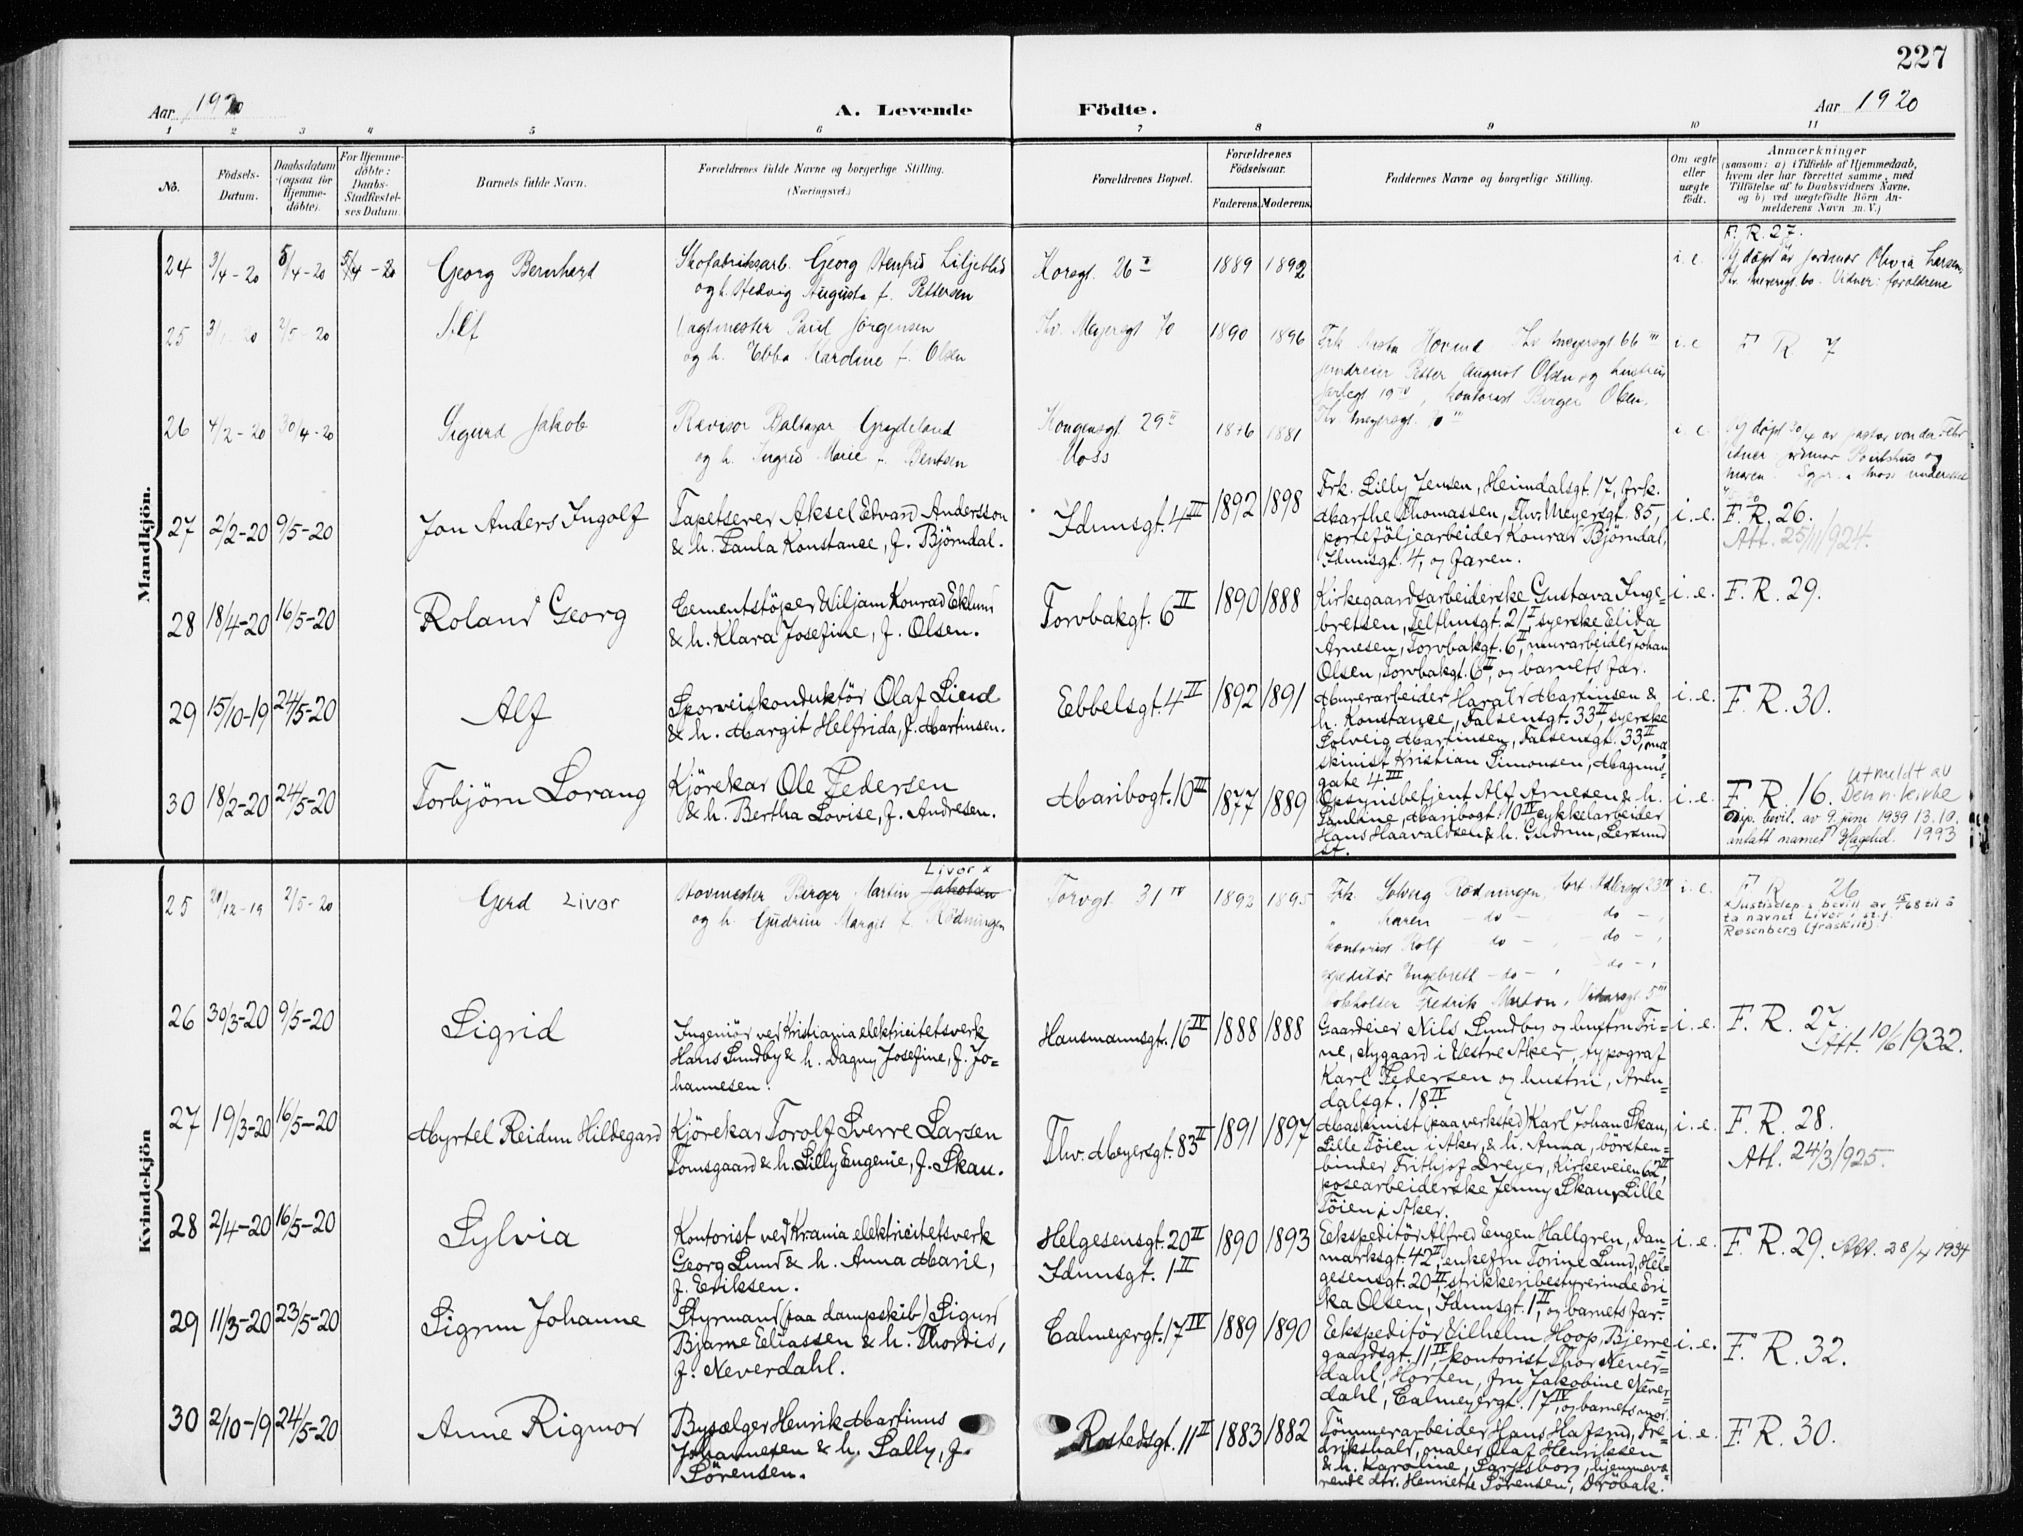 227
Aar 1920 A. Levende Födte. Aar 1920
1 2 3 4 5 6 7 8 9 10 11
No. Födsels-Datum. Daabsdatum (ogsaa for Hjemme-döbte). For Hjemme-döbte: Daabs-Stadfæstel-ses Datum. Barnets fulde Navn. Forældrenes fulde Navne og borgerlige Stilling. (Næringsvei.) Forældrenes Bopæl. Forældrenes Födselsaar. Faderens. Moderens. Faddernes Navne og borgerlige Stilling. Om ægte eller uægte födt. Anmærkninger (saasom: a) i Tilfælde af Hjemmedaab, hvem der har forrettet samme, med Tilföielse af to Daabsvidners Navne, og b) ved uægtefödte Börn An-melderens Navn m. V.)
Mandkjön.
24 3/4-20 5/4-20 5/4-20 Georg Bernhard Skofabrikarb. Georg Henfrid Liljeblad
og h. Hedvig Augusta f. Pettersen
Korsgt. 26 1889 1892 i.e. F.R. 27.
Hj døpt av jordmor Olivia Larsen,
Thv. Meyersgt. 60. Vidner: forældrene
25 2/5-20 Alf Vagtmester Paul Jørgensen
og h. Ebba Karoline f. Olsen
Thv. Meyersgt 70 1890 1896 Hovind Thv Meyersgt 66 III
jerndreier Petter August Olsen og hustru
kontorist Birger Olsen,
Thv Meyersgt. 70 III
i.e F R. 7
26 4/2-20 30/4-20 Sigurd Jakob Revisor Baltazar Grødeland
og h. Ingrid Marie f. Bentsen
Kongensgt. 29 II
Moss
1876 1881 i.e. Hj døpt 30/4 av pastor von der Fehr
27 2/2-20 9/5-20 Jon Anders Ingolf Tapetserer Aksel Edvard Andersson
& h. Paula Konstance, f. Björndal.
Idunsgt. 4 III 1892 1898 Frk. Lilly Jensen, Heimdalsgt. 17, frk.
Marthe Thomassen, Thv. Meyersgt. 85,
porteföljearbeider Konrad Björndal,
Idunsgt. 4, og faren.
i.e. F.R. 26.
Att. 25/11/924.
28 18/4-20 16/5-20 Roland Georg Cementstöper Wiljam Konrad Eklund
& h. Klara Josefine, f. Olsen.
Torvbakgt. 6 II 1890 1888 Kirkegaardsarbeiderske Gustava Inge-
bretsen, Telthusgt. 21 I, syerske Elida
Arnesen, Torvbakgt. 6 II, murarbeider Johan
Olsen, Torvbakgt. 6 II, og barnets far.
i.e. F.R. 29.
29 15/10-19 24/5-20 Alf Sporveiskonduktör Olaf Lied
& h. Margit Helfrida, f. Martinsen.
Ebbelsgt. 4 II 1892 1891 Murerarbeider Harald Martinsen &
h. Konstance, Falsensgt. 33 II, syerske
Solveig Martinsen, Falsensgt. 33 II, ma-
skinist Kristian Simonsen, Magnus-
gate 4 III
i.e. F.R. 30.
30 18/2-20 24/5-20 Torbjörn Lorang Kjörekar Ole Pedersen
& h. Bertha Lovise, f. Andresen.
Maribogt. 10 III 1877 1889 Opsynsbetjent Alf Arnesen & h.
Pauline, Maribogt. 10 IV, cykkelarbeider
Hans Haavaldsen & h. Gudrun, Lersund
st.
i.e. F.R. 16. Utmeldt av
Den n. kirke
13.10.
1993
bevil. av 9. juni 1939
antatt navnet Hagelid.
Kvindekjön
25 20/12-19 2/5-20 Gerd Livor Hovmester Berger Martin Jakobsen Livor x
og h. Gudrun Margit f. Rödningen
Torvgt. 31 IV 1892 1895 Frk. Solveig Rödningen, 23 IV
" Karen - do - do -,
kontorist Rolf - do -, - do -,
expeditör Engebrett - do -, do -,
bokholder Fredrik Morton, Vidarsgt. 5 III
i.e. F R 26
x Justisdep.s bevill. av 15/68 til å
ta navnet Livor i st.f.
Rosenberg (fraskilt).
26 30/3-20 9/5-20 Sigrid Ingeniör ved Kristiania elektricitetsverk
Hans Sundby & h. Dagny Josefine, f. Jo-
hannesen.
Hausmannsgt. 16 IV 1888 1888 Gaardeier Nils Sundby og hustru Tri-
ne, Nygaard i Vestre Aker, typograf
Karl Pedersen og hustru, Aren-
dalsgt. 18 II
i.e. F.R. 27.
Att. 10/6 1932.
27 19/3-20 16/5-20 Myrtel Reidun Hildegard Kjörekar Torolf Sverre Larsen
Tomsgaard & h. Lilly Eugenie, f. Skau.
Thv. Meyersgt. 83 II 1891 1897 Maskinist (paa verksted) Karl Johan Skau,
Lille Töien i Aker, & h. Anna, börsten-
binder Frithjof Dreyer, Kirkeveien 62 II,
posearbeiderske Jenny Skau, Lille
Töien i Aker.
i.e. F.R. 28.
Att. 24/3/925.
28 2/4-20 16/5-20 Sylvia Kontorist ved Krania elektricitetsverk
Georg Lund & h. Anna Marie,
f. Eriksen.
Helgesensgt. 20 II
Idunsgt. 1 II
1890 1893 Ekspeditör Alfred Eugen Hallgren, Dan-
marksgt. 42 II, enkefru Torine Lund, Hel-
gesensgt. 20 II, strikkeribestyrerinde Eri-
ka Olsen, Idunsgt. 1 II, og barnets far.
i.e. F.R. 29. Att. 28/4 1934
29 11/3-20 23/5-20 Sigrun Johanne Styrmand (paa dampskib) Sigurd
Bjarne Eliassen & h. Thordis,
f. Neverdahl.
Calmeyergt. 17 IV 1889 1890 Ekspeditör Vilhelm Hoop, Bjerre-
gaardsgt. 11 IV, kontorist Thor Never-
dahl, Horten, fru Jakobine Never-
dahl, Calmeyergt. 17 IV, og barnets mor.
i.e. F.R. 32.
30 2/10-19 24/5-20 Anne Rigmor Bysælger Henrik Martinus
Johannesen & h. Sally, f.
Sörensen.
Rostedsgt. 11 II 1883 1882 Tömmerarbeider Hans Hafsrud, Fre-
drikshald, maler Olaf Henriksen
& h. Karoline, Sarpsborg, hjemmevæ-
rende dtr. Henriette Sörensen, Dröbak.
i.e. F.R. 30.